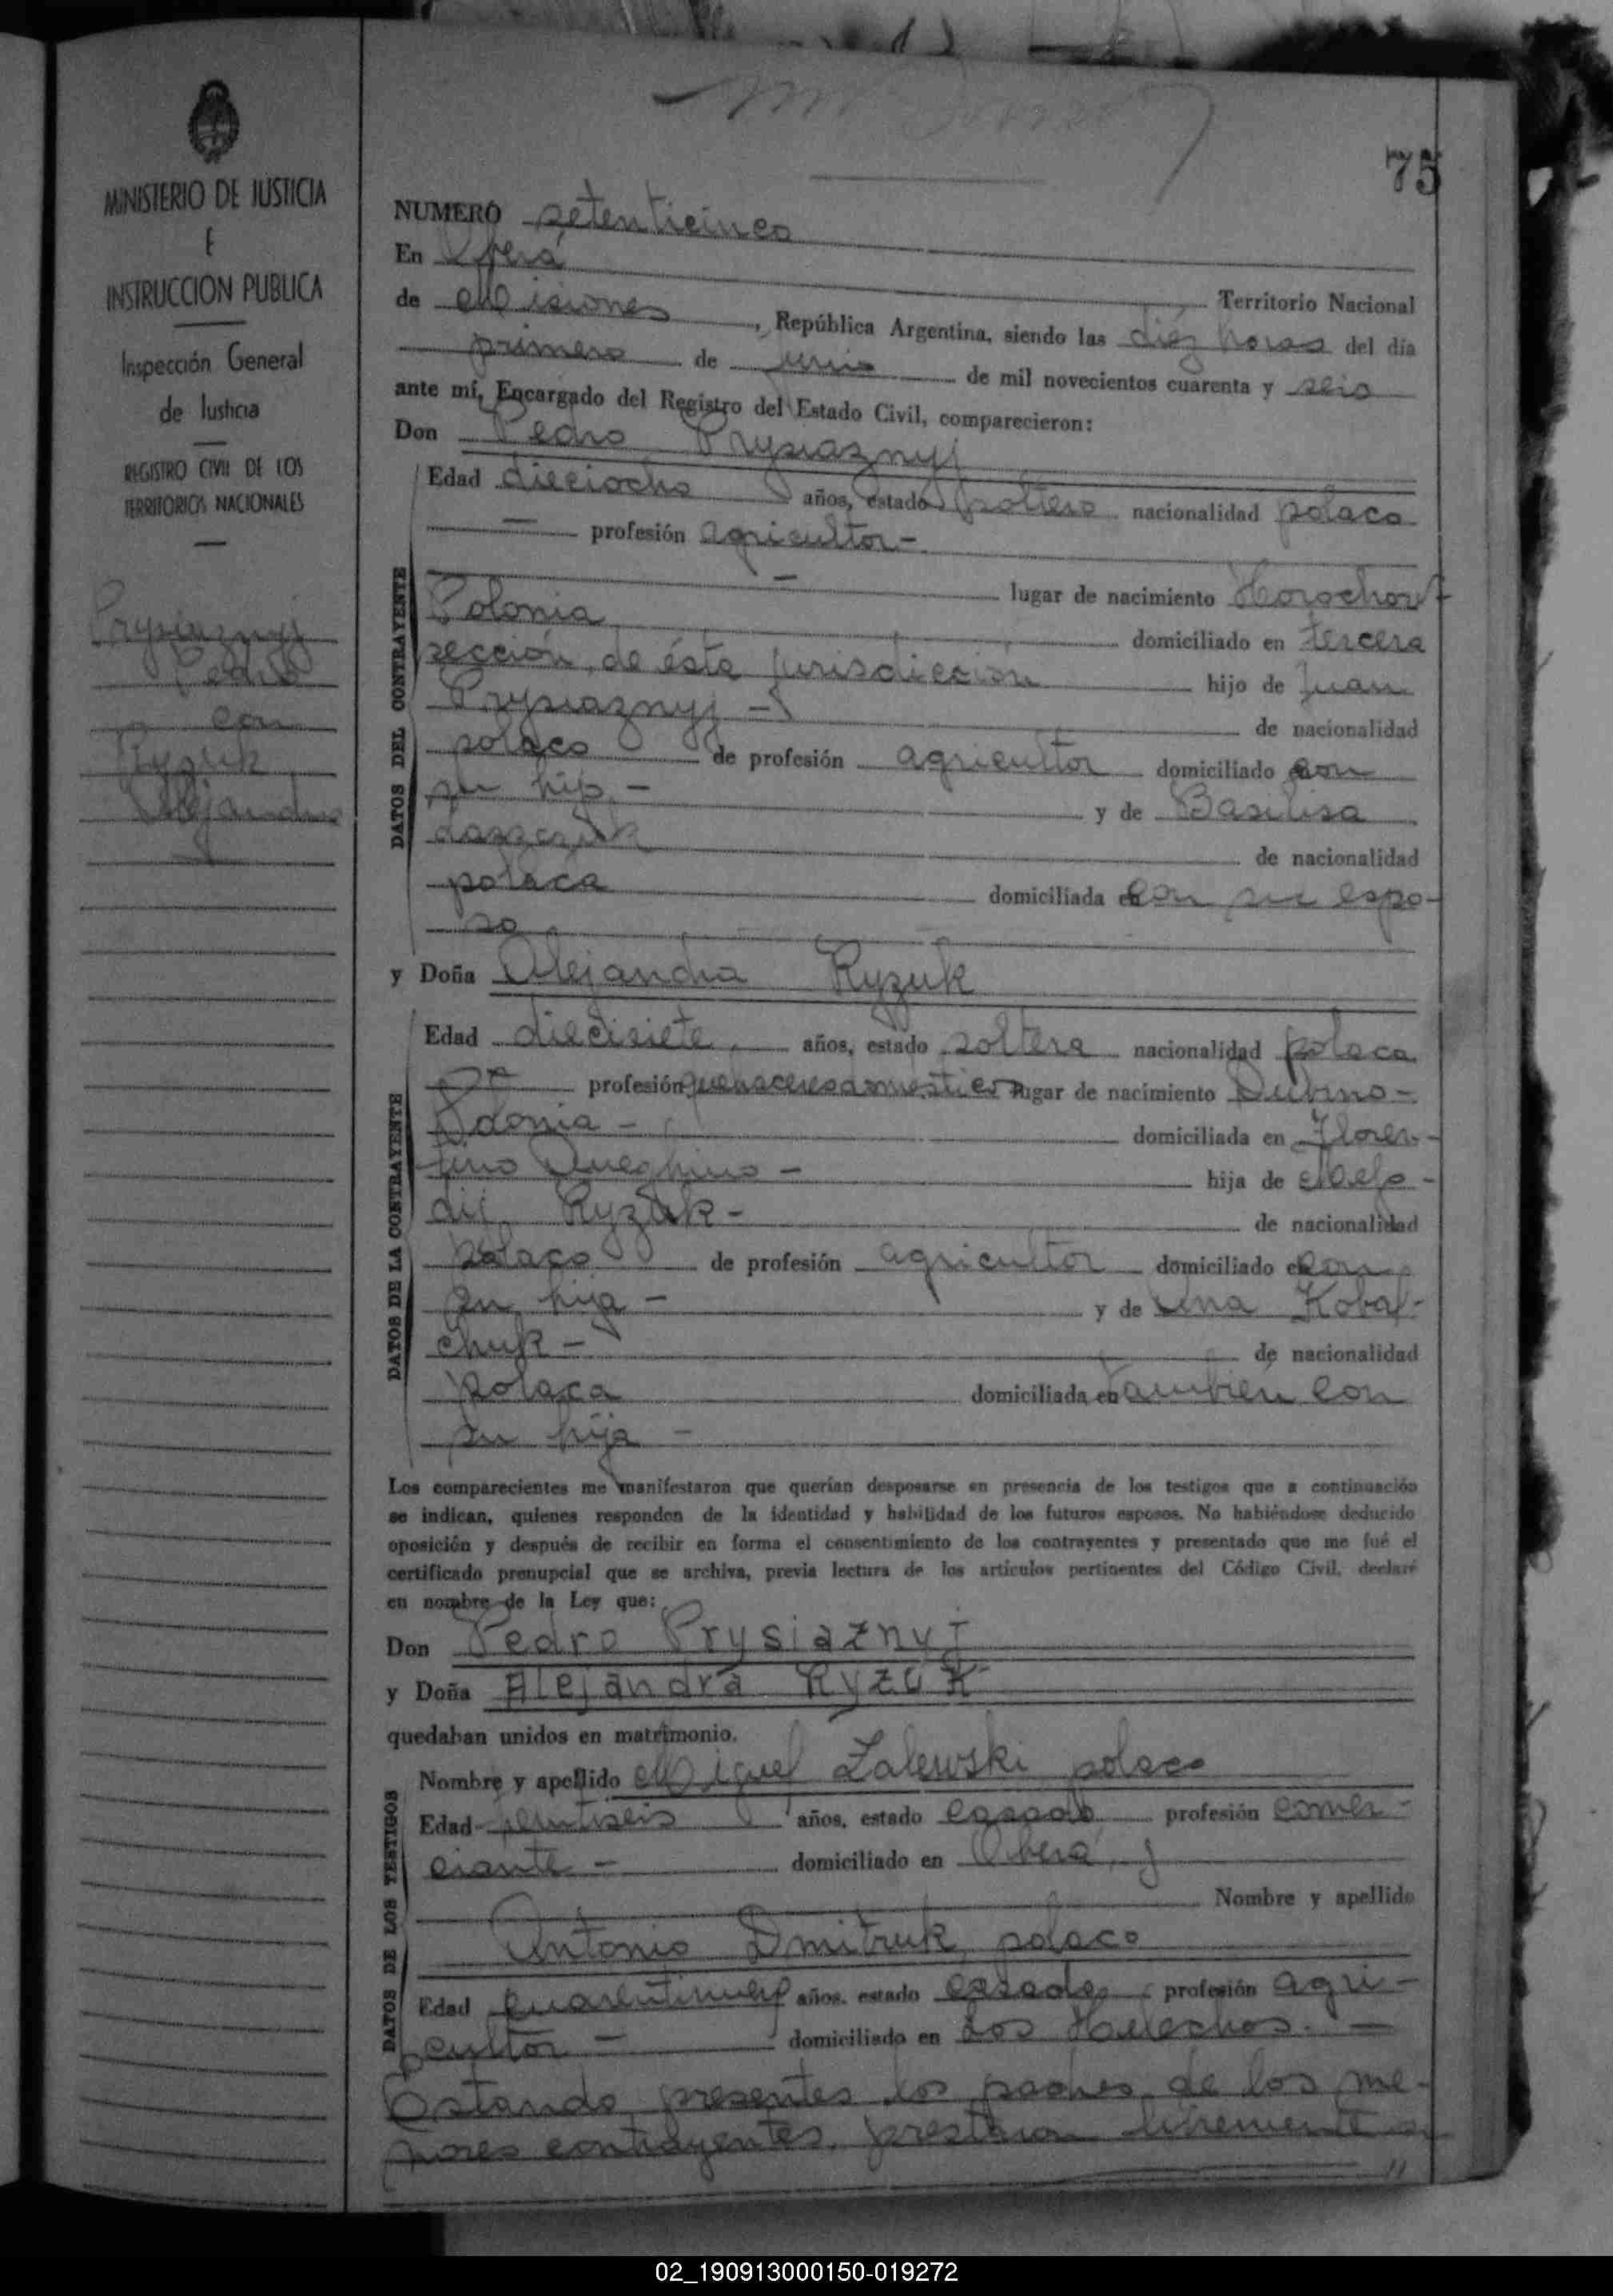 75
MINISTERIO DE JUSTICIA
E
INSTRUCCION PUBLICA
Inspección General
de Justicia
REGISTRO CIVIL DE LOS
TERRITORIOS NACIONALES
Prysiaznyj
Pedro
con
Ryzuk
Alejandra
NUMERO setenticinco
En Oberá
Territorio Nacional
de Misiones, República Argentina, siendo las diez horas del día
primero de junio de mil novecientos cuarenta y seis
ante mí, Encargado del Registro del Estado Civil, comparecieron:
Don Pedro Prysiaznyj
DATOS DEL CONTRAYENTE
Edad dieciocho años, estado soltero nacionalidad polaca
— profesión agricultor -
— lugar de nacimiento Horochow -
Polonia domiciliado en tercera
sección de ésta jurisdicción hijo de Juan
Prysiaznyj - de nacionalidad
polaco de profesión agricultor domiciliado con
su hijo - y de Basilisa
de nacionalidad
polaca domiciliada en con su espo-
so
y Doña Alejandra Ryzuk
DATOS DE LA CONTRAYENTE
Edad diecisiete años, estado soltera nacionalidad polaca
profesión quehaceres domésticos lugar de nacimiento Dubno -
Polonia - domiciliada en Floren-
tino Ameghino - hija de Mefo-
dij Ryzuk - de nacionalidad
polaco de profesión agricultor domiciliado con
su hija - y de Ana Kobal-
chuk - de nacionalidad
polaca domiciliada en también con
su hija -
Los comparecientes me manifestaron que querían desposarse en presencia de los testigos que a continuación
se indican, quienes responden de la identidad y habilidad de los futuros esposos. No habiéndose deducido
oposición y después de recibir en forma el consentimiento de los contrayentes y presentado que me fué el
certificado prenupcial que se archiva, previa lectura de los artículos pertinentes del Código Civil, declaré
en nombre de la Ley que:
Don Pedro Prysiaznyj
y Doña Alejandra Ryzuk
quedaban unidos en matrimonio.
DATOS DE LOS TESTIGOS
Nombre y apellido Miguel Zalewski polaco
Edad años, estado casado profesión comer-
ciante - domiciliado en Oberá, y
Nombre y apellido
Antonio Dmitruk, polaco
Edad cuarentinueve años, estado casado profesión agri-
cultor - domiciliado en Los Helechos. -
Estando presentes los padres de los me-
nores contrayentes, prestaron libremente su
//
02_190913000150-019272